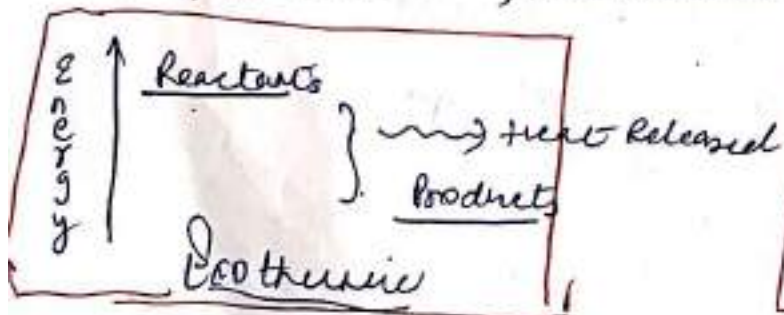 Energy
Reactants
Heat Released
Products
Exothermic